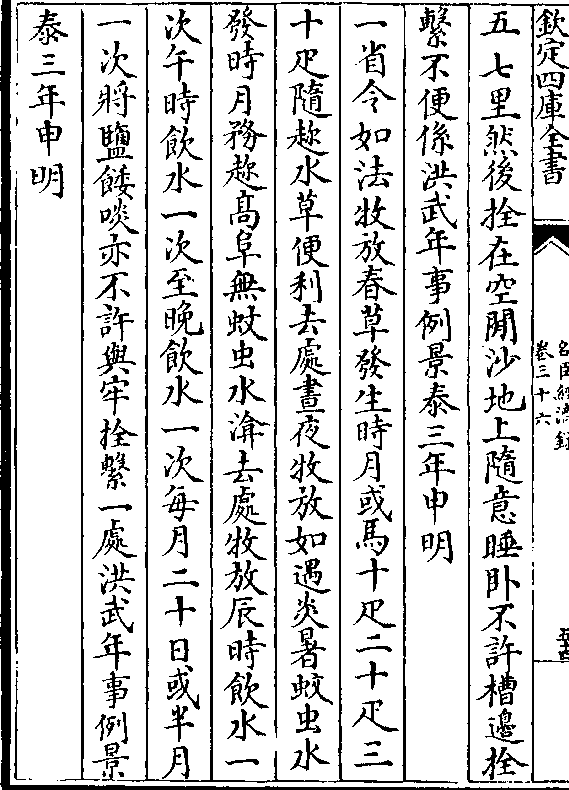 欽定四庫全書
名臣經濟録
卷三十六
五七里然後拴在空閒沙地上隨意睡卧不許槽邊拴
繫不便係洪武年事例景泰三年申明
一省令如法牧放春草發生時月或馬十疋二十疋三
十疋隨趂水草便利去處晝夜牧放如遇炎暑蚊虫水
發時月務趂髙阜無蚊虫水渰去處牧放辰時飲水一
次午時飲水一次至晚飲水一次每月二十日或半月
一次將鹽餧啖亦不許與牢拴繫一處洪武年事例景
泰三年申明